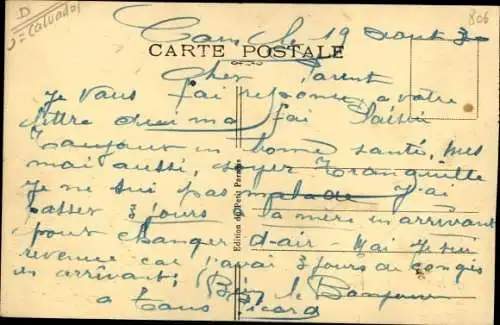 D
= Calvados
806
Caen le 19 aout 3
CARTE POSTALE
Cher Parent
Je vous fai reponce a votre
lettre qui ma fai Plaisir
Toujours en bonne santé, mes
mai aussi, soyer tranquille
Je ne sui pas malade J'ai
passer 3 jours la mere en arrivant
pour changer d-air - Mai Je sui
revenue car j'avai 3 jours de congés
en arrivant, Bien le Bonjour
a tous Picard
Edition du Petit Parisien